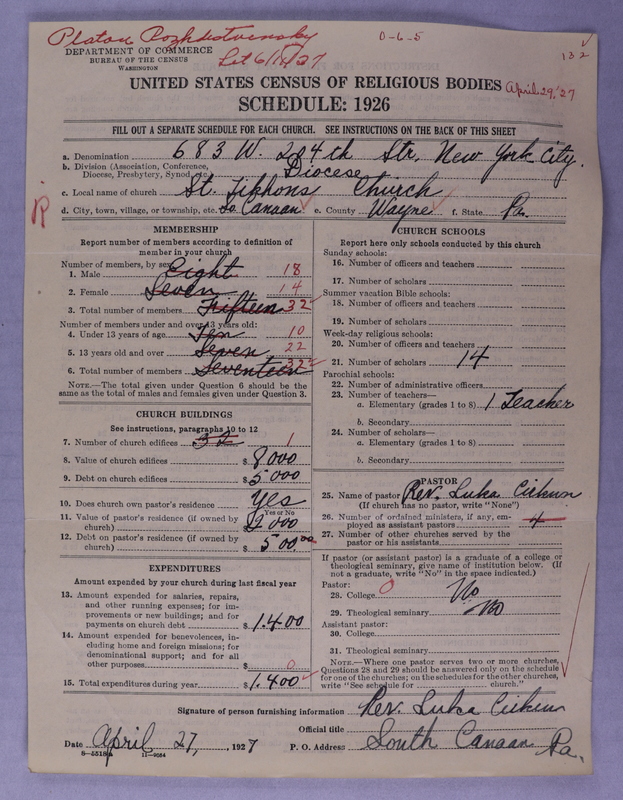 Platon Rozhdestvensky
D-6-5
132
DEPARTMENT OF COMMERCE
BUREAU OF THE CENSUS
WASHINGTON
Let 6/18/27
UNITED STATES CENSUS OF RELIGIOUS BODIES
April 29, '27
SCHEDULE: 1926
FILL OUT A SEPARATE SCHEDULE FOR EACH CHURCH. SEE INSTRUCTIONS ON THE BACK OF THIS SHEET
a. Denomination 683 W. 204th Str. New York City.
b. Division (Association, Conference, Diocese, Presbytery, Synod, etc. Diocese
c. Local name of church St. Tikhons Church
R
d. City, town, village, or township, etc. So Canaan e. County Wayne f. State Pa.
MEMBERSHIP
Report number of members according to definition of
member in your church
Number of members, by sex:
1. Male Eight 18
2. Female Seven 14
3. Total number of members Fifteen 32
Number of members under and over 13 years old:
4. Under 13 years of age Ten 10
5. 13 years old and over Seven 22
6. Total number of members Seventeen 32
NOTE.—The total given under Question 6 should be the
same as the total of males and females given under Question 3.
CHURCH BUILDINGS
See instructions, paragraphs 10 to 12
7. Number of church edifices 32 1
8. Value of church edifices $ 8000
9. Debt on church edifices $ 5000
10. Does church own pastor's residence Yes
Yes or No
11. Value of pastor's residence (if owned by
church) $ 2000
12. Debt on pastor's residence (if owned by
church) $ 500.00
EXPENDITURES
Amount expended by your church during last fiscal year
13. Amount expended for salaries, repairs,
and other running expenses; for im-
provements or new buildings; and for
payments on church debt $ 1.400
14. Amount expended for benevolences, in-
cluding home and foreign missions; for
denominational support; and for all
other purposes $ 0
15. Total expenditures during year $ 1.400
CHURCH SCHOOLS
Report here only schools conducted by this church
Sunday schools:
16. Number of officers and teachers
17. Number of scholars
Summer vacation Bible schools:
18. Number of officers and teachers
19. Number of scholars
Week-day religious schools:
20. Number of officers and teachers
21. Number of scholars 14
Parochial schools:
22. Number of administrative officers
23. Number of teachers—
a. Elementary (grades 1 to 8) 1 Teacher
b. Secondary
24. Number of scholars—
a. Elementary (grades 1 to 8)
b. Secondary
PASTOR
25. Name of pastor Rev. Luka
(If church has no pastor, write "None")
26. Number of ordained ministers, if any, em-
ployed as assistant pastors 4
27. Number of other churches served by the
pastor or his assistants
If pastor (or assistant pastor) is a graduate of a college or
theological seminary, give name of institution below. (If
not a graduate, write "No" in the space indicated.)
Pastor:
28. College 0 No
29. Theological seminary No
Assistant pastor:
30. College
31. Theological seminary
NOTE.—Where one pastor serves two or more churches,
Questions 28 and 29 should be answered only on the schedule
for one of the churches; on the schedules for the other churches,
write "See schedule for church."
Signature of person furnishing information Rev. Luka
Official title
Date April 27, , 1927 P. O. Address South Canaan Pa.
8-5518a 11-9684